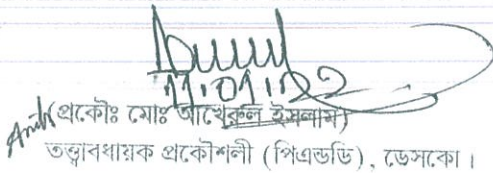 11.01.22
(প্রকৌঃ মোঃ আখেরুল ইসলাম)
তত্ত্বাবধায়ক প্রকৌশলী (পিএন্ডডি), ডেসকো।